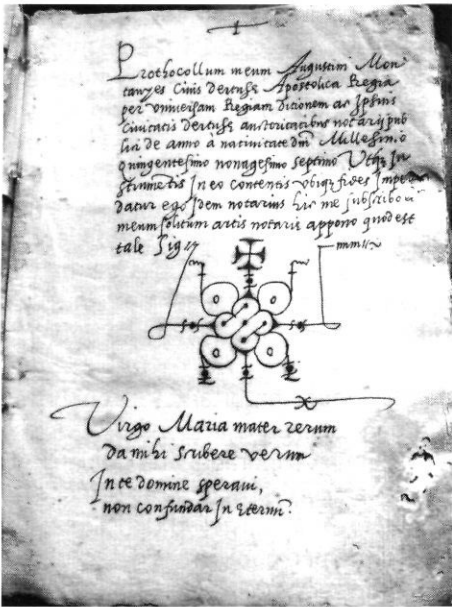 1
Prothocollum meum Augustim Mon
tanyes Civis Dertuse Apostolica Regia
per universam Regiam dicionem ac Ipsius
Civitatis Dertuse auctoritatibus notarij pub
lici de anno a nativitate dni Millesimo
quingentesimo nonagesimo septimo Utqz In
strumetis In eo contentis ubiqz fides Impen
datur ego Idem notarius hic me subscribo
meum solitum artis notarie appono quod est
tale Sig
Virgo Maria mater rerum
da mihi scribere verum
In te domine speravi,
non confundar In eternu.